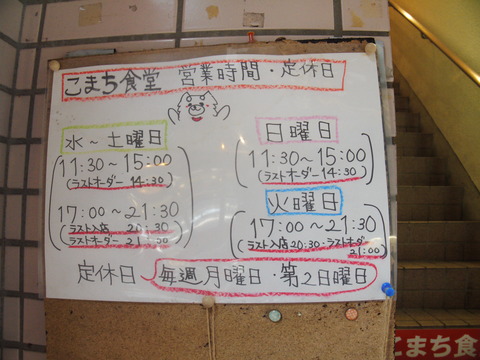 こまち食堂 営業時間・定休日
水～土曜日
11:30～15:00
(ラストオーダー 14:30)
17:00～21:30
ラスト入店 20:30
ラストオーダー 21:00
日曜日
11:30～15:00
(ラストオーダー 14:30)
火曜日
17:00～21:30
ラスト入店 20:30・ラストオーダー
21:00
定休日 毎週月曜日・第2日曜日
こまち食